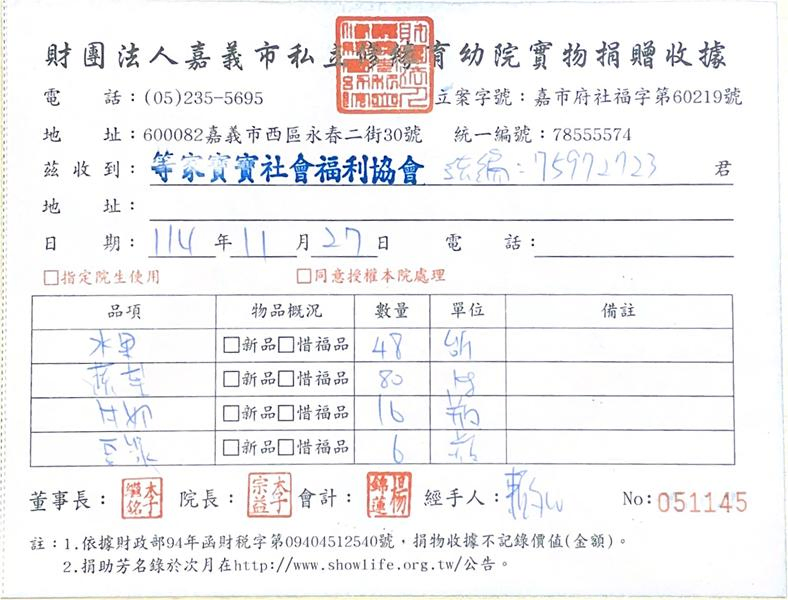 財團法人嘉義市私立修緣育幼院實物捐贈收據
電 話：(05)235-5695 立案字號：嘉市府社福字第60219號
地 址：600082嘉義市西區永春二街30號 統一編號：78555574
茲收到：等家寶寶社會福利協會 統編：75972723 君
地 址：
日 期：114年11月27日 電 話：
□指定院生使用 □同意授權本院處理
品項 物品概況 數量 單位 備註
水果 □新品□惜福品 48
□新品□惜福品 80 kg
□新品□惜福品 16
□新品□惜福品 6
董事長： 院長： 會計： 經手人： No:051145
註：1.依據財政部94年函財稅字第09404512540號，捐物收據不記錄價值(金額)。
2.捐助芳名錄於次月在http://www.showlife.org.tw/公告。